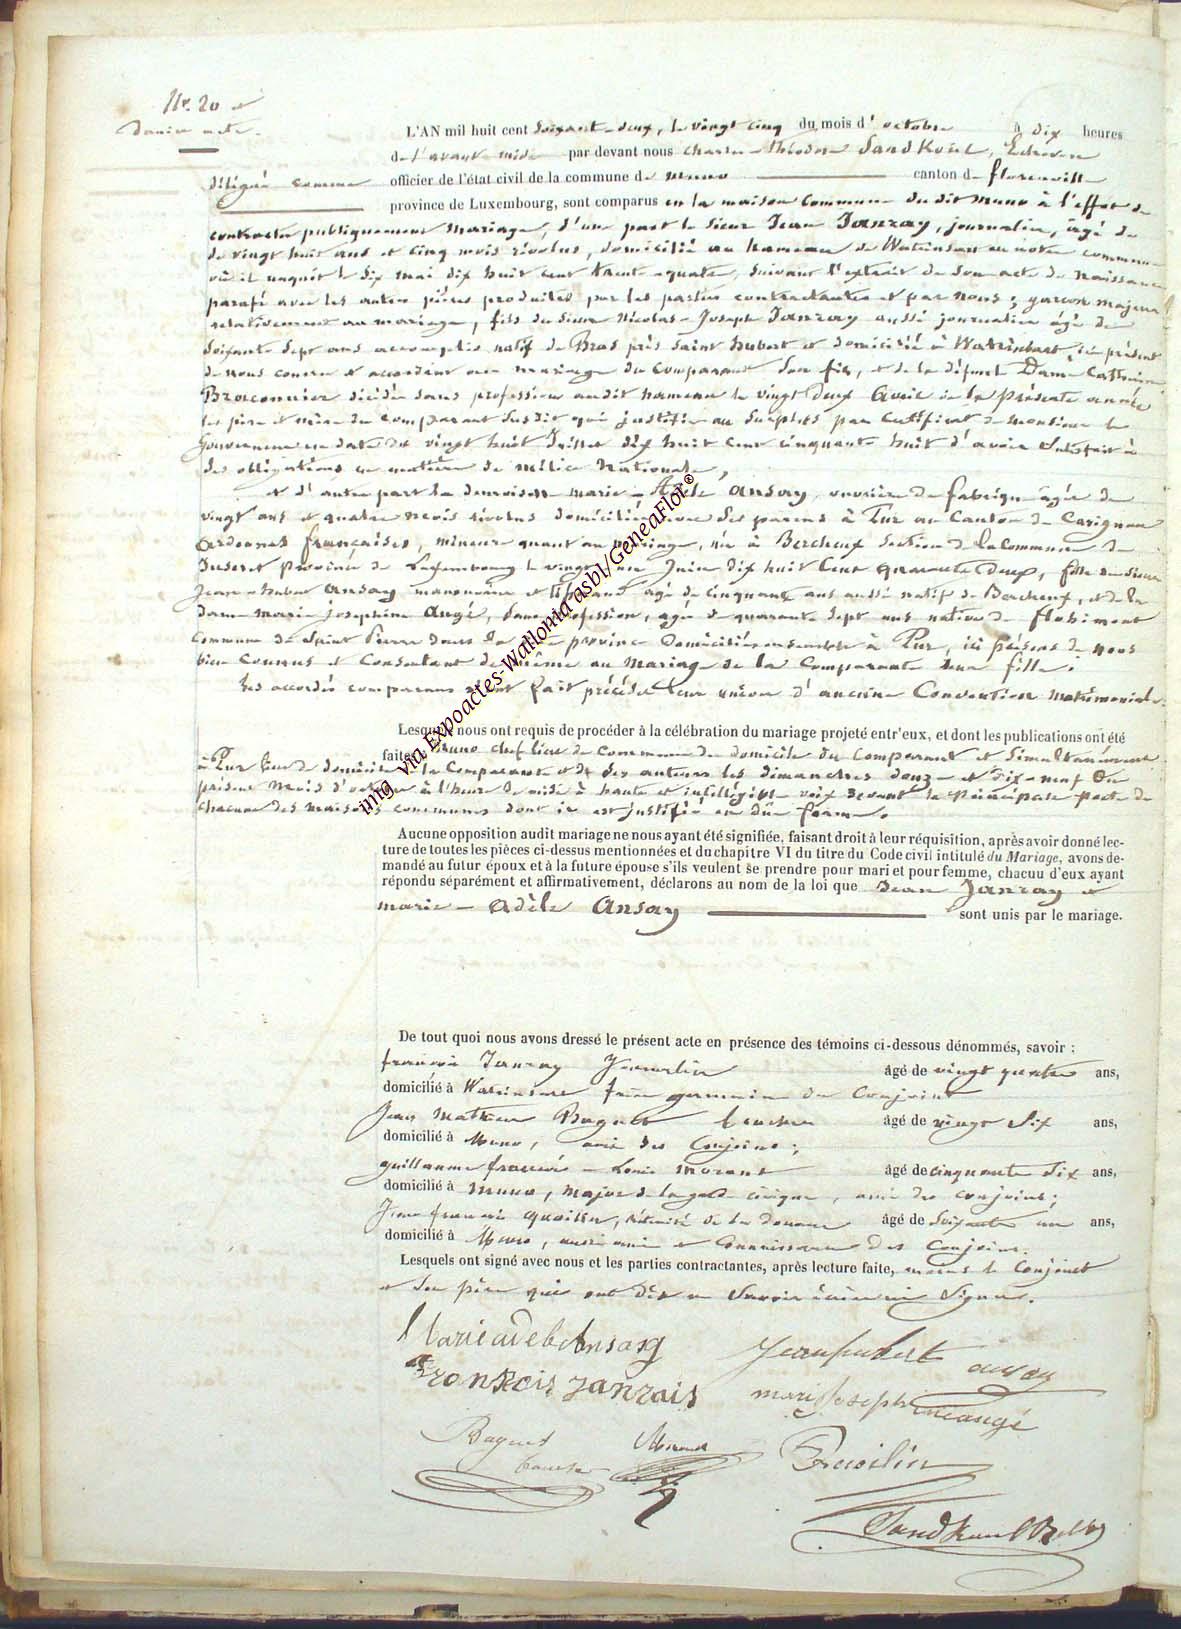 N°. 20 et
dernier acte.
L'AN mil huit cent soixante-deux, le vingt cinq du mois d'octobre à dix heures
de l'avant midi par devant nous Charles-Théodore Sandkoul, Echevin
délégué comme officier de l'état civil de la commune de Muno canton de florenville
province de Luxembourg, sont comparus en la maison Commune du dit Muno à l'effet de
contracter publiquement mariage, d'une part le sieur Jean Janray, journalier, âgé de
de vingt huit ans et cinq mois révolus, domicilié au hameau de Watrinsart en notre commune
où il naquit le dix mai dix huit cent trente-quatre, suivant l'extrait de son acte de naissance
parafé avec les autres pièces produites par les parties contractantes et par nous; garçon majeur
relativement au mariage, fils du sieur Nicolas-Joseph Janray aussi journalier âgé de
soixante sept ans accomplis natif de Bras près Saint hubert et domicilié à Watrinsart, ici présent
de nous connu et accordant au mariage du comparant son fils, et de la défunte Dame Catherine
Braconnier décédée sans profession audit hameau le vingt deux Avril de la présente année
les père et mère du comparant susdit qui justifie au surplus par certificat de monsieur le
Gouverneur en date du vingt huit Juillet dix huit cent cinquante huit d'avoir satisfait à
des obligations en matière de milice Nationale,
et d'autre part la demoiselle marie-Adèle ansay, ouvrière de fabrique âgée de
vingt ans et quatre mois révolus domiciliée avec ses parens à Pur au Canton de Carignan
ardennes françaises, mineure quant au mariage, née à Bercheux section de la Commune de
Juseret province de Luxembourg le vingt un Juin dix huit Cent quarante deux, fille du sieur
Jean-hubert ansay manouvrier et tisserand âgé de cinquante ans aussi natif de Bercheux, et de la
dame marie josephine Augé, sans profession, âgée de quarante sept ans native de flohimont
Commune de Saint Pierre dans la même province Domiciliés ensemble à Pur, ici présens de nous
bien connus et Consentant de même au mariage de la Comparante leur fille;
Les accordés comparans n'ont fait précéder leur union d'aucune Convention matrimoniale.
Lesquels nous ont requis de procéder à la célébration du mariage projeté entr'eux, et dont les publications ont été
faites à Muno chef lieu de Commune du domicile du Comparant et simultanément
à Pur lieu de domicile de la Comparante et de ses auteurs les dimanches douze et dix-neuf du
présent mois d'octobre à l'heure de midi à haute et intelligible voix devant la principale porte de
chacune des maisons communes dont il est justifié en dûe forme.
Aucune opposition audit mariage ne nous ayant été signifiée, faisant droit à leur réquisition, après avoir donné lec-
ture de toutes les pièces ci-dessus mentionnées et du chapitre VI du titre du Code civil intitulé du Mariage, avons de-
mandé au futur époux et à la future épouse s'ils veulent se prendre pour mari et pour femme, chacuu d'eux ayant
répondu séparément et affirmativement, déclarons au nom de la loi que Jean Janray et
marie-Adèle Ansay sont unis par le mariage.
De tout quoi nous avons dressé le présent acte en présence des témoins ci-dessous dénommés, savoir :
françois Janray Journalier âgé de vingt quatre ans,
domicilié à Watrinsart frère germain du Conjoint
Jean Mathieu Baguet âgé de vingt six ans,
domicilié à Muno, ami des Conjoins;
guillaume françois-Louis Morant âgé de cinquante six ans,
domicilié à Muno, major de la garde civique, ami des conjoins;
Jean françois âgé de soixante un ans,
domicilié à Muno, aussi ami et connaissance des Conjoins.
Lesquels ont signé avec nous et les parties contractantes, après lecture faite, moins le Conjoint
et son père qui ont dit ne savoir écrire ni signer.
Marie adele Ansay
Jean hubert ansay
François Janrais
marie Josephine augé
Baguet
Morant
Sandkoul
img via Expoactes-Wallonia asbl/GeneaFlor®